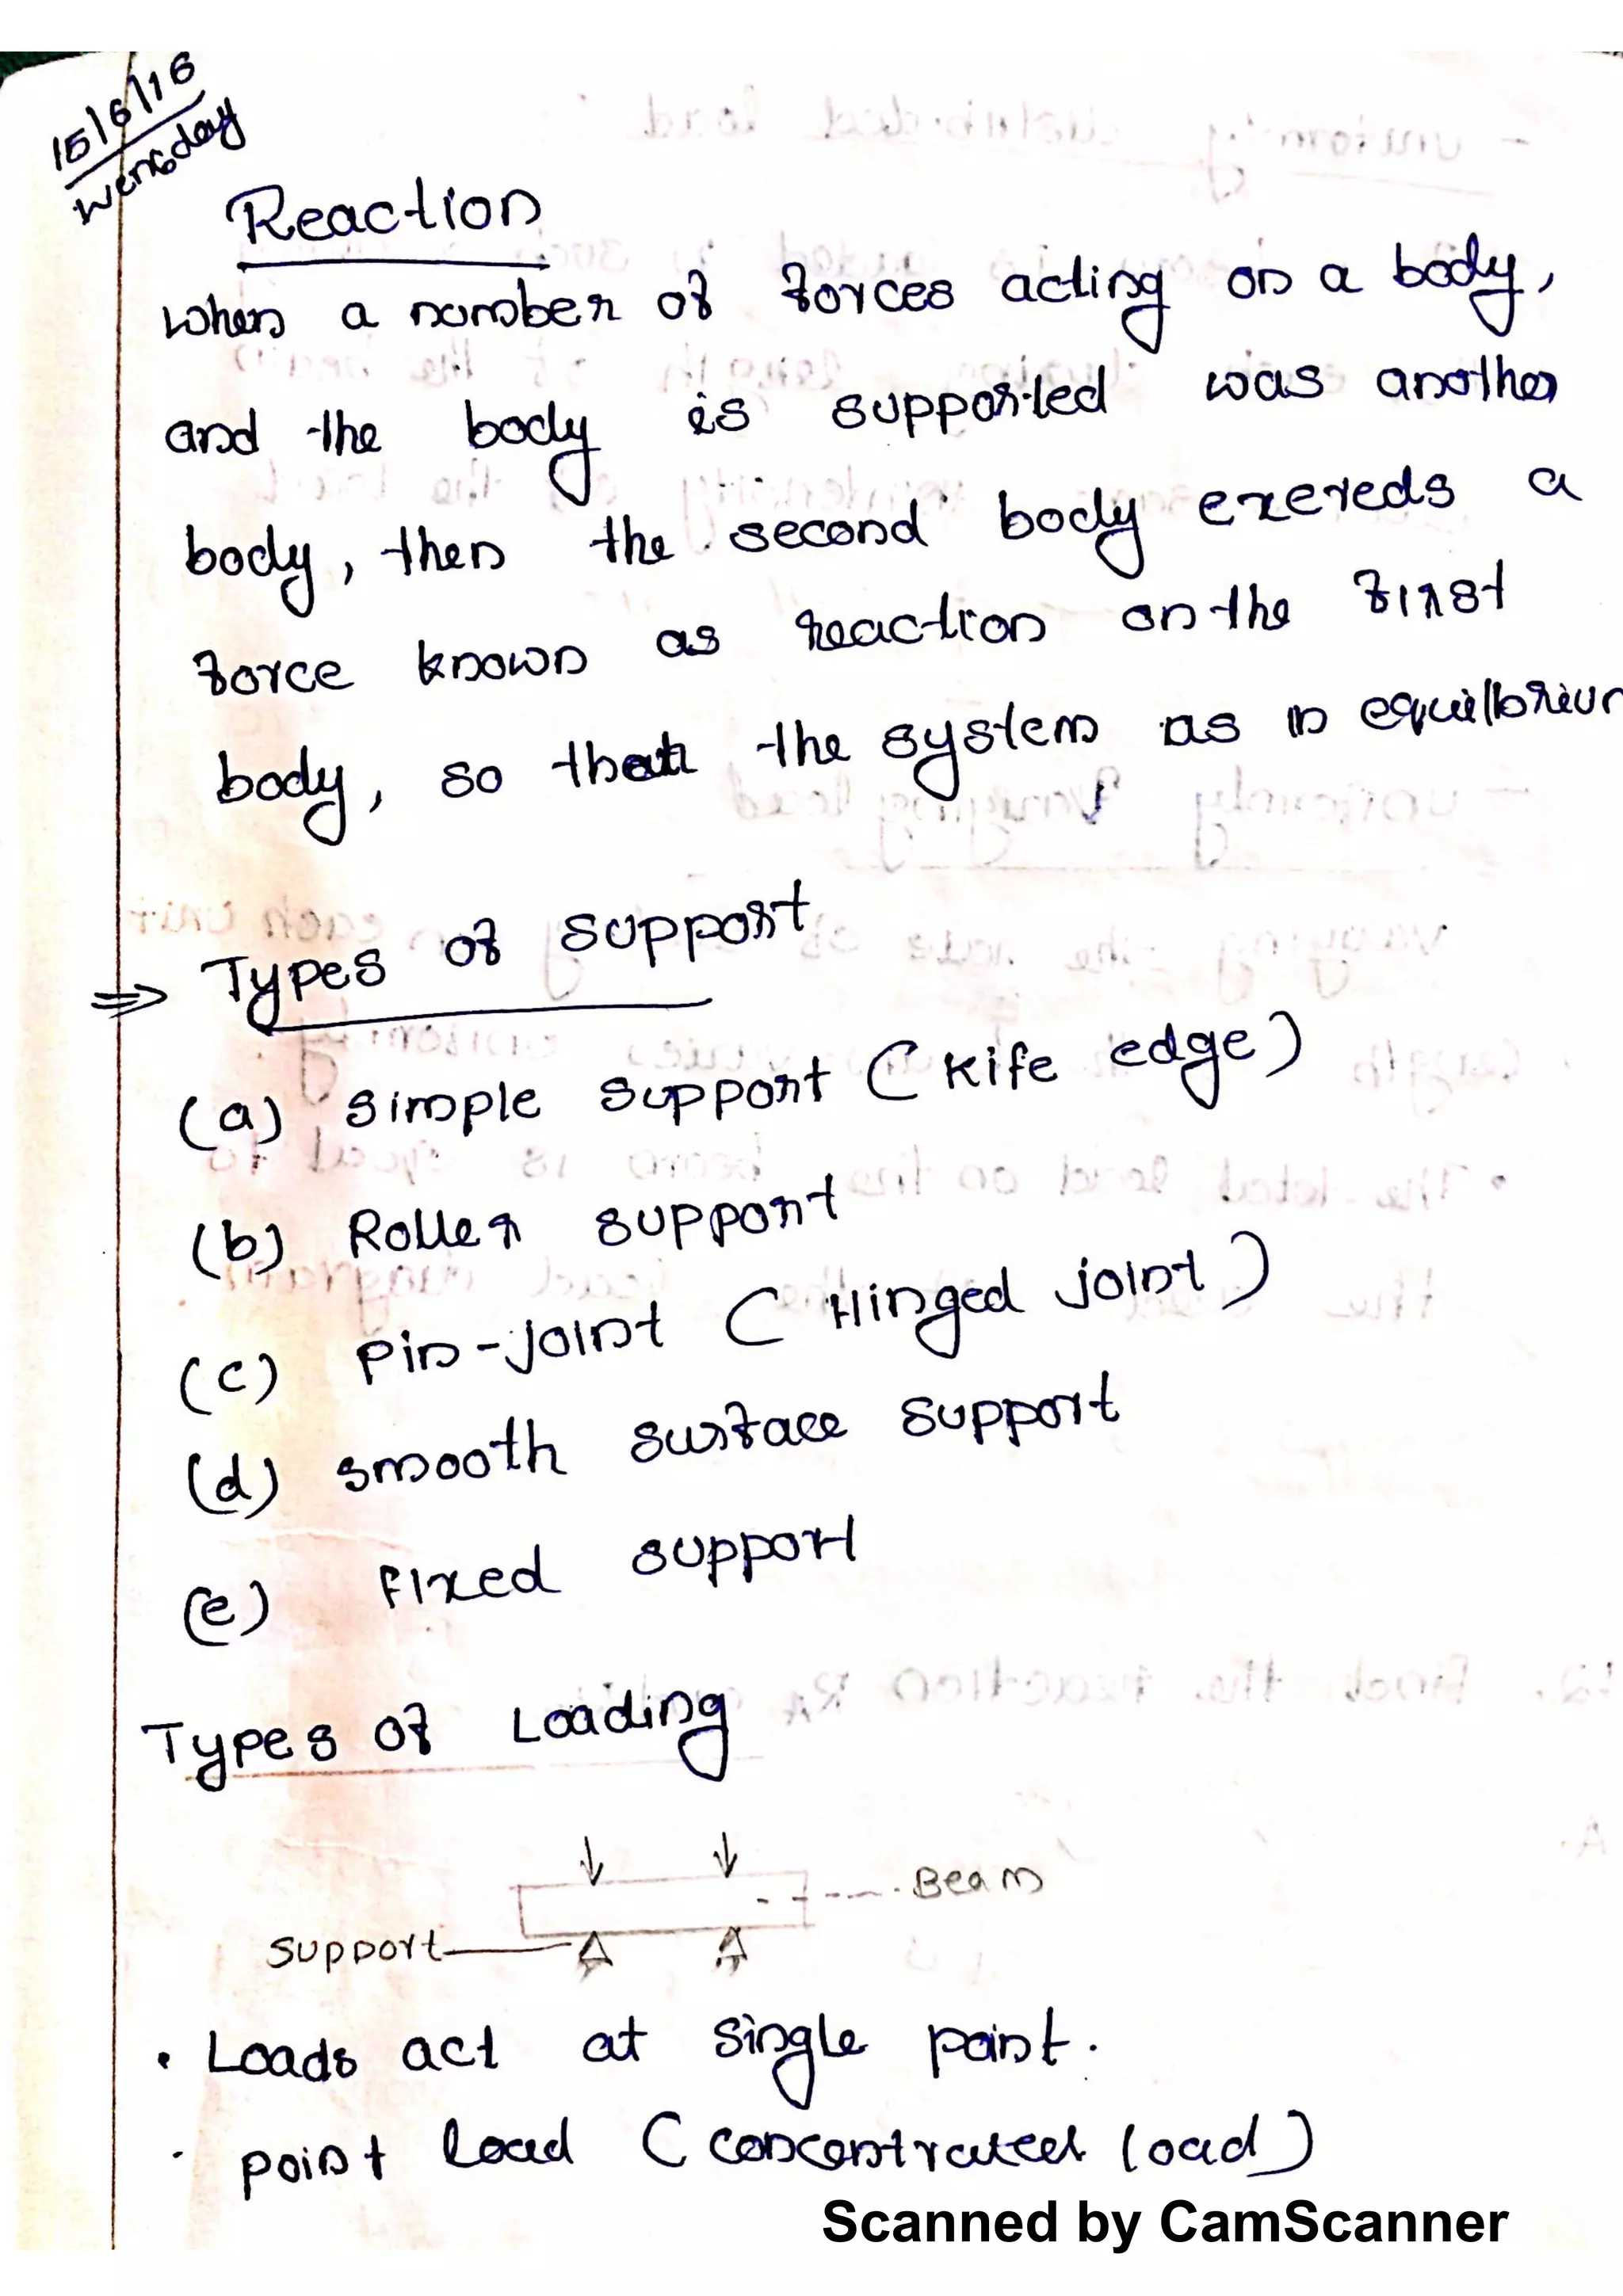 15/6/16
Wensday
Reaction
when a number of forces acting on a body,
and the body is supported was another
body, then the second body exereds a
force known as reaction on the first
body, so that the system as in equilbrium
⇒ Types of support
(a) simple support (Kife edge)
(b) Roller support
(c) Pin-joint (Hinged joint)
(d) smooth surface support
(e) Fixed support
Types of Loading
Beam
Support
• Loads act at single point.
• point load (concentrated load)
Scanned by CamScanner